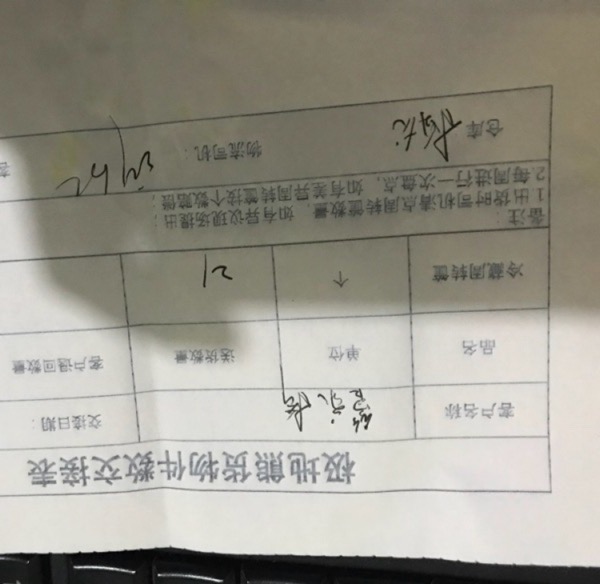 极地熊货物件数交接表
客户名称 交接日期:
品名 单位 送货数量 客户退回数量
冷藏周转筐 个 21
备注:
1出货时司机清点周转筐数量,如有异议现场提出;
2.每周进行一次盘点,如有差异周转筐按个数赔偿;
仓库 物流司机: